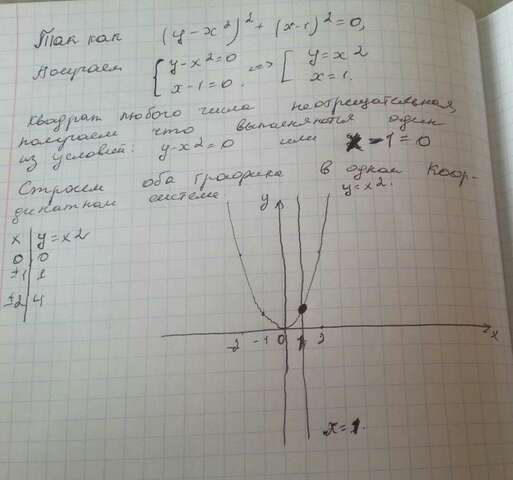 Так как (y-x²)² + (x-1)² = 0,
Получаем { y-x²=0 <=> [ y=x2
x-1=0. x=1.
Квадрат любого числа неотрицательная,
получаем что выполняются один
из условий: y-x2=0 или x-1=0
Строим оба графика в одной коор-
динатной системе. y=x2.
x | y=x2
0 | 0
±1 | 1
±2 | 4
y
-2 -1 0 1 2 x
x=1.